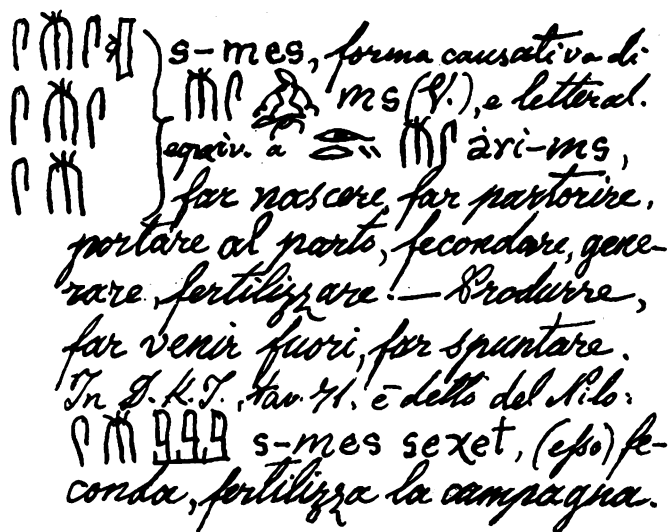 𓋴𓄟𓋴 s-mes, forma causativa di
𓋴𓄟𓋴 𓄟𓋴 ms (V.), e letteral.
𓋴𓄟 equiv. a 𓄟𓋴 àri-ms,
far nascere, far partorire,
portare al parto, fecondare, gene-
rare, fertilizzare. — Produrre,
far venir fuori, far spuntare.
In D. K. I., tav. 71, è detto del Nilo:
𓋴𓄟 s-mes sexet, (esso) fe-
conda, fertilizza la campagna.